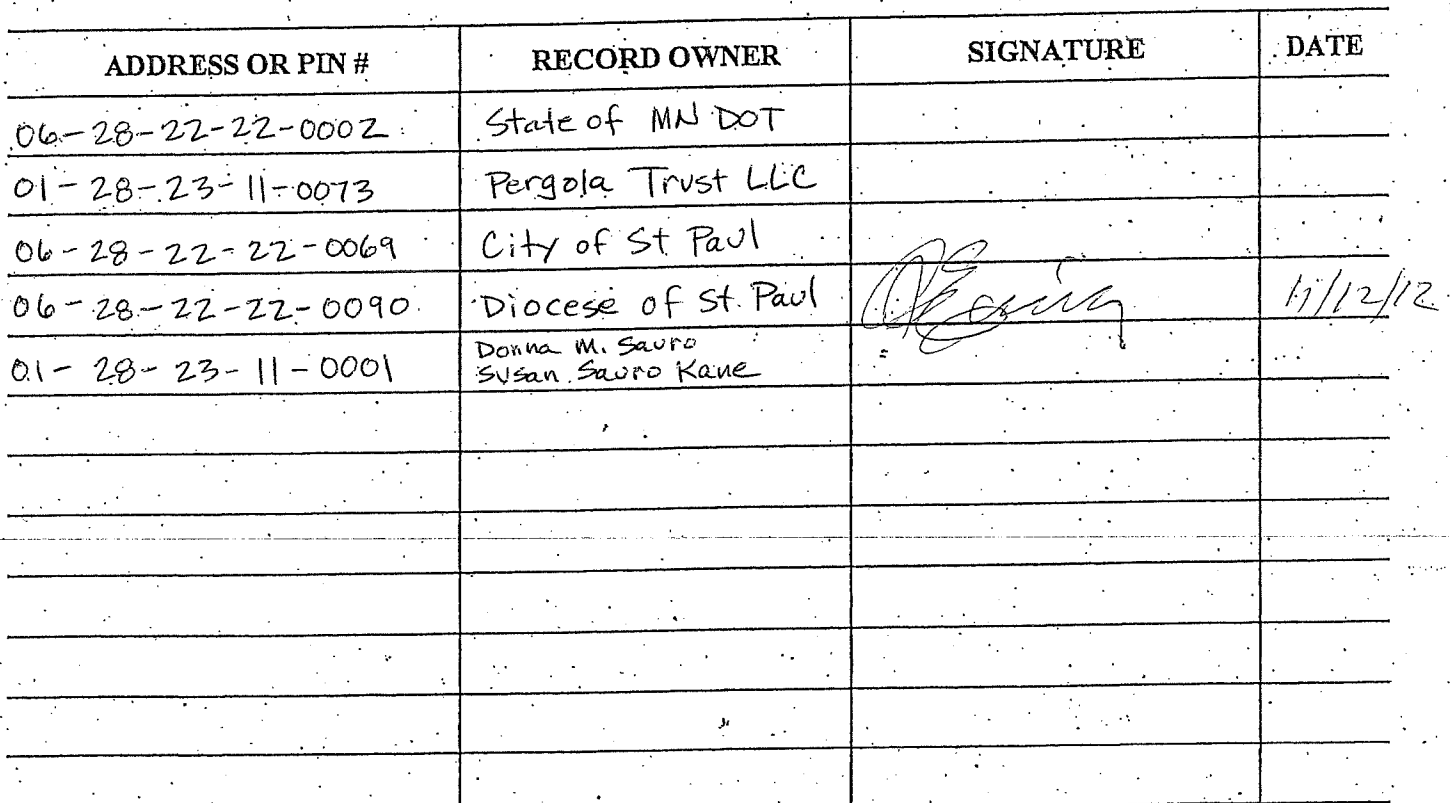 ADDRESS OR PIN # RECORD OWNER SIGNATURE DATE
06-28-22-22-0002 State of MN DOT
01-28-23-11-0073 Pergola Trust LLC
06-28-22-22-0069 City of St Paul
06-28-22-22-0090 Diocese of St. Paul 11/12/12
01-28-23-11-0001 Donna M. Sauro
Susan Sauro Kane